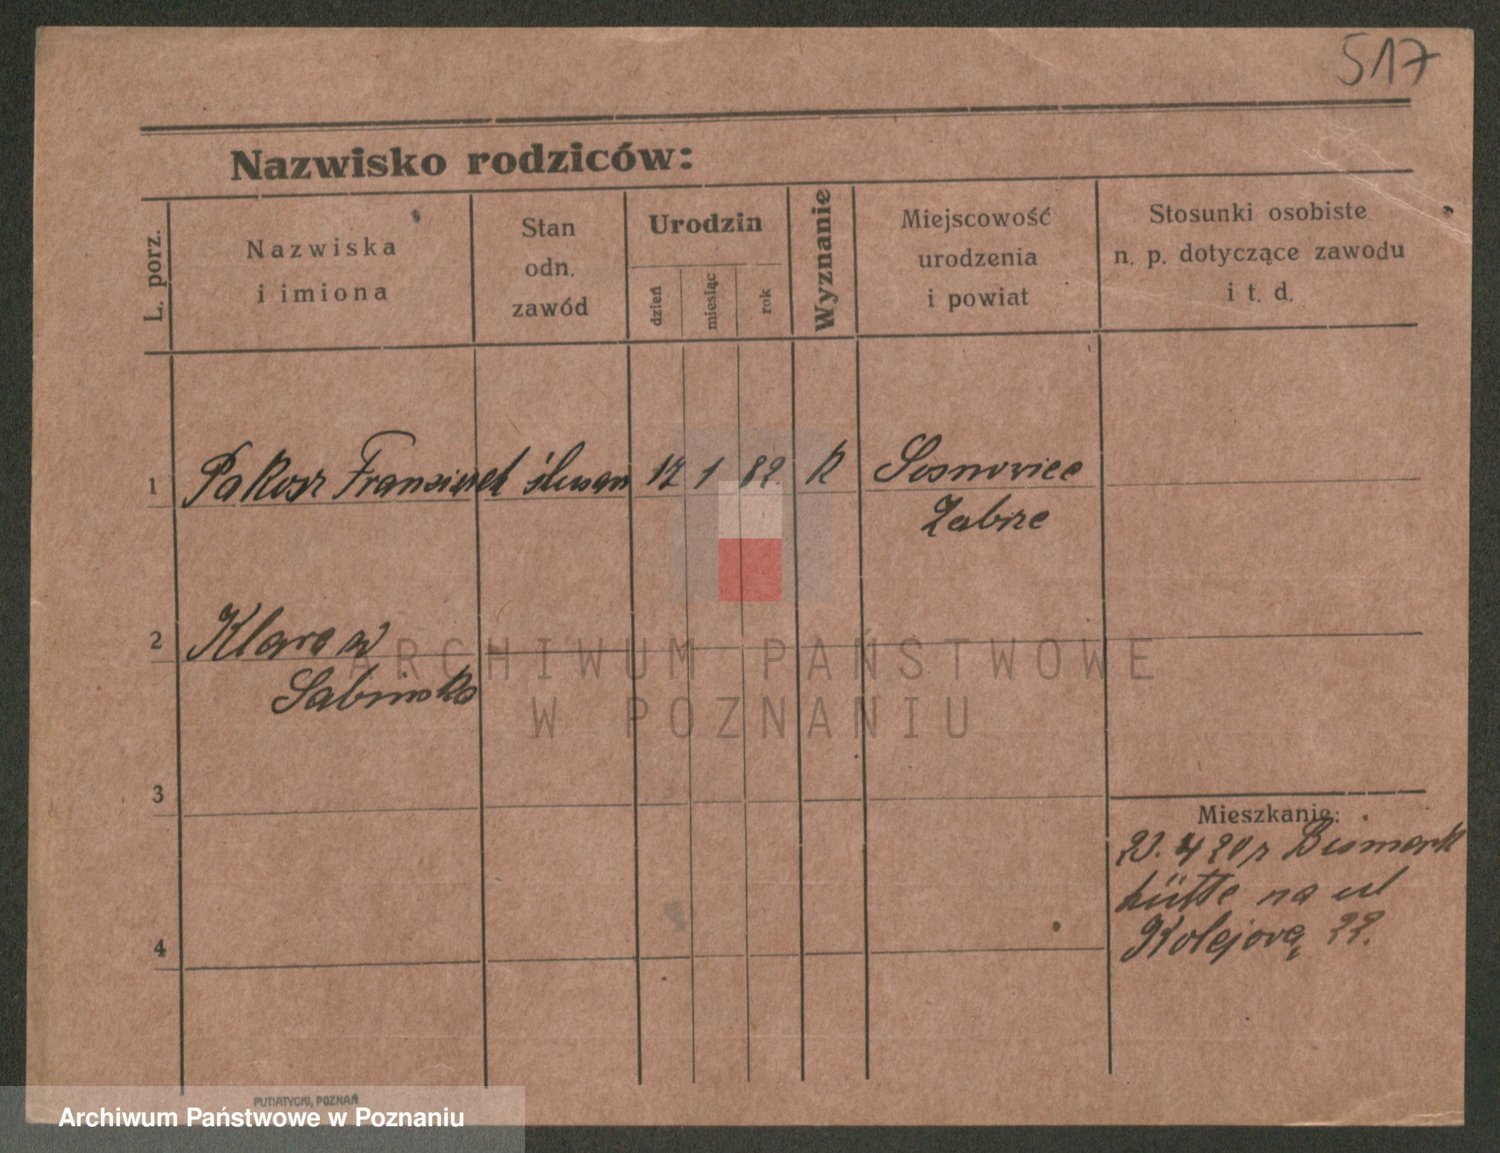 517
Nazwisko rodziców:
L. porz.
Nazwiska
i imiona
Stan
odn.
zawód
Urodzin
dzień
miesiąc
rok
Wyznanie
Miejscowość
urodzenia
i powiat
Stosunki osobiste
n. p. dotyczące zawodu
i t. d.
1 Pakosz Franciszek ślusarz 17 1 82 K Sosnowiec
Zabrze
2 Klara
Sabinska
3
4
Mieszkanie:
23. 4 20 r Bismark
hütte na ul
Kolejową 22.
ARCHIWUM PAŃSTWOWE
W POZNANIU
PUTIATYCKI, POZNAŃ
Archiwum Państwowe w Poznaniu